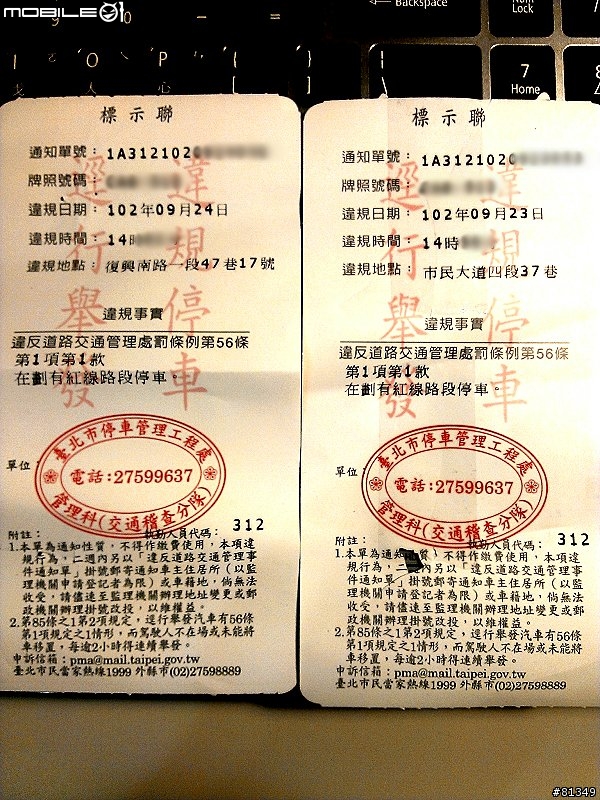 MOBILE01
9
0
-
=
Backspace
Num
Lock
O
P
人
心
7
Home
標示聯
通知單號：1A3121020
牌照號碼：
違規日期：102年09月24日
違規時間：14時
違規地點：復興南路一段47巷17號
違規事實
違反道路交通管理處罰條例第56條
第1項第1款
在劃有紅線路段停車。
違規停車
逕行舉發
單位：
臺北市停車管理工程處
電話:27599637
管理科(交通稽查分隊)
執勤人員代碼：
312
附註：
1.本單為通知性質，不得作繳費使用，本項違
規行為，二週內另以「違反道路交通管理事
件通知單」掛號郵寄通知車主住居所（以監
理機關申請登記者為限）或車籍地，倘無法
收受，請儘速至監理機關辦理地址變更或郵
政機關辦理掛號改投，以維權益。
2.第85條之1第2項規定，逕行舉發汽車有56條
第1項規定之1情形，而駕駛人不在場或未能將
車移置，每逾2小時得連續舉發。
申訴信箱：pma@mail.taipei.gov.tw
臺北市民當家熱線1999 外縣市(02)27598889
標示聯
通知單號：1A3121020
牌照號碼：
違規日期：102年09月23日
違規時間：14時
違規地點：市民大道四段37巷
違規事實
違反道路交通管理處罰條例第56條
第1項第1款
在劃有紅線路段停車。
違規停車
逕行舉發
單位：
臺北市停車管理工程處
電話:27599637
管理科(交通稽查分隊)
執勤人員代碼：
312
附註：
1.本單為通知性質，不得作繳費使用，本項違
規行為，二週內另以「違反道路交通管理事
件通知單」掛號郵寄通知車主住居所（以監
理機關申請登記者為限）或車籍地，倘無法
收受，請儘速至監理機關辦理地址變更或郵
政機關辦理掛號改投，以維權益。
2.第85條之1第2項規定，逕行舉發汽車有56條
第1項規定之1情形，而駕駛人不在場或未能將
車移置，每逾2小時得連續舉發。
申訴信箱：pma@mail.taipei.gov.tw
臺北市民當家熱線1999 外縣市(02)27598889
#81349